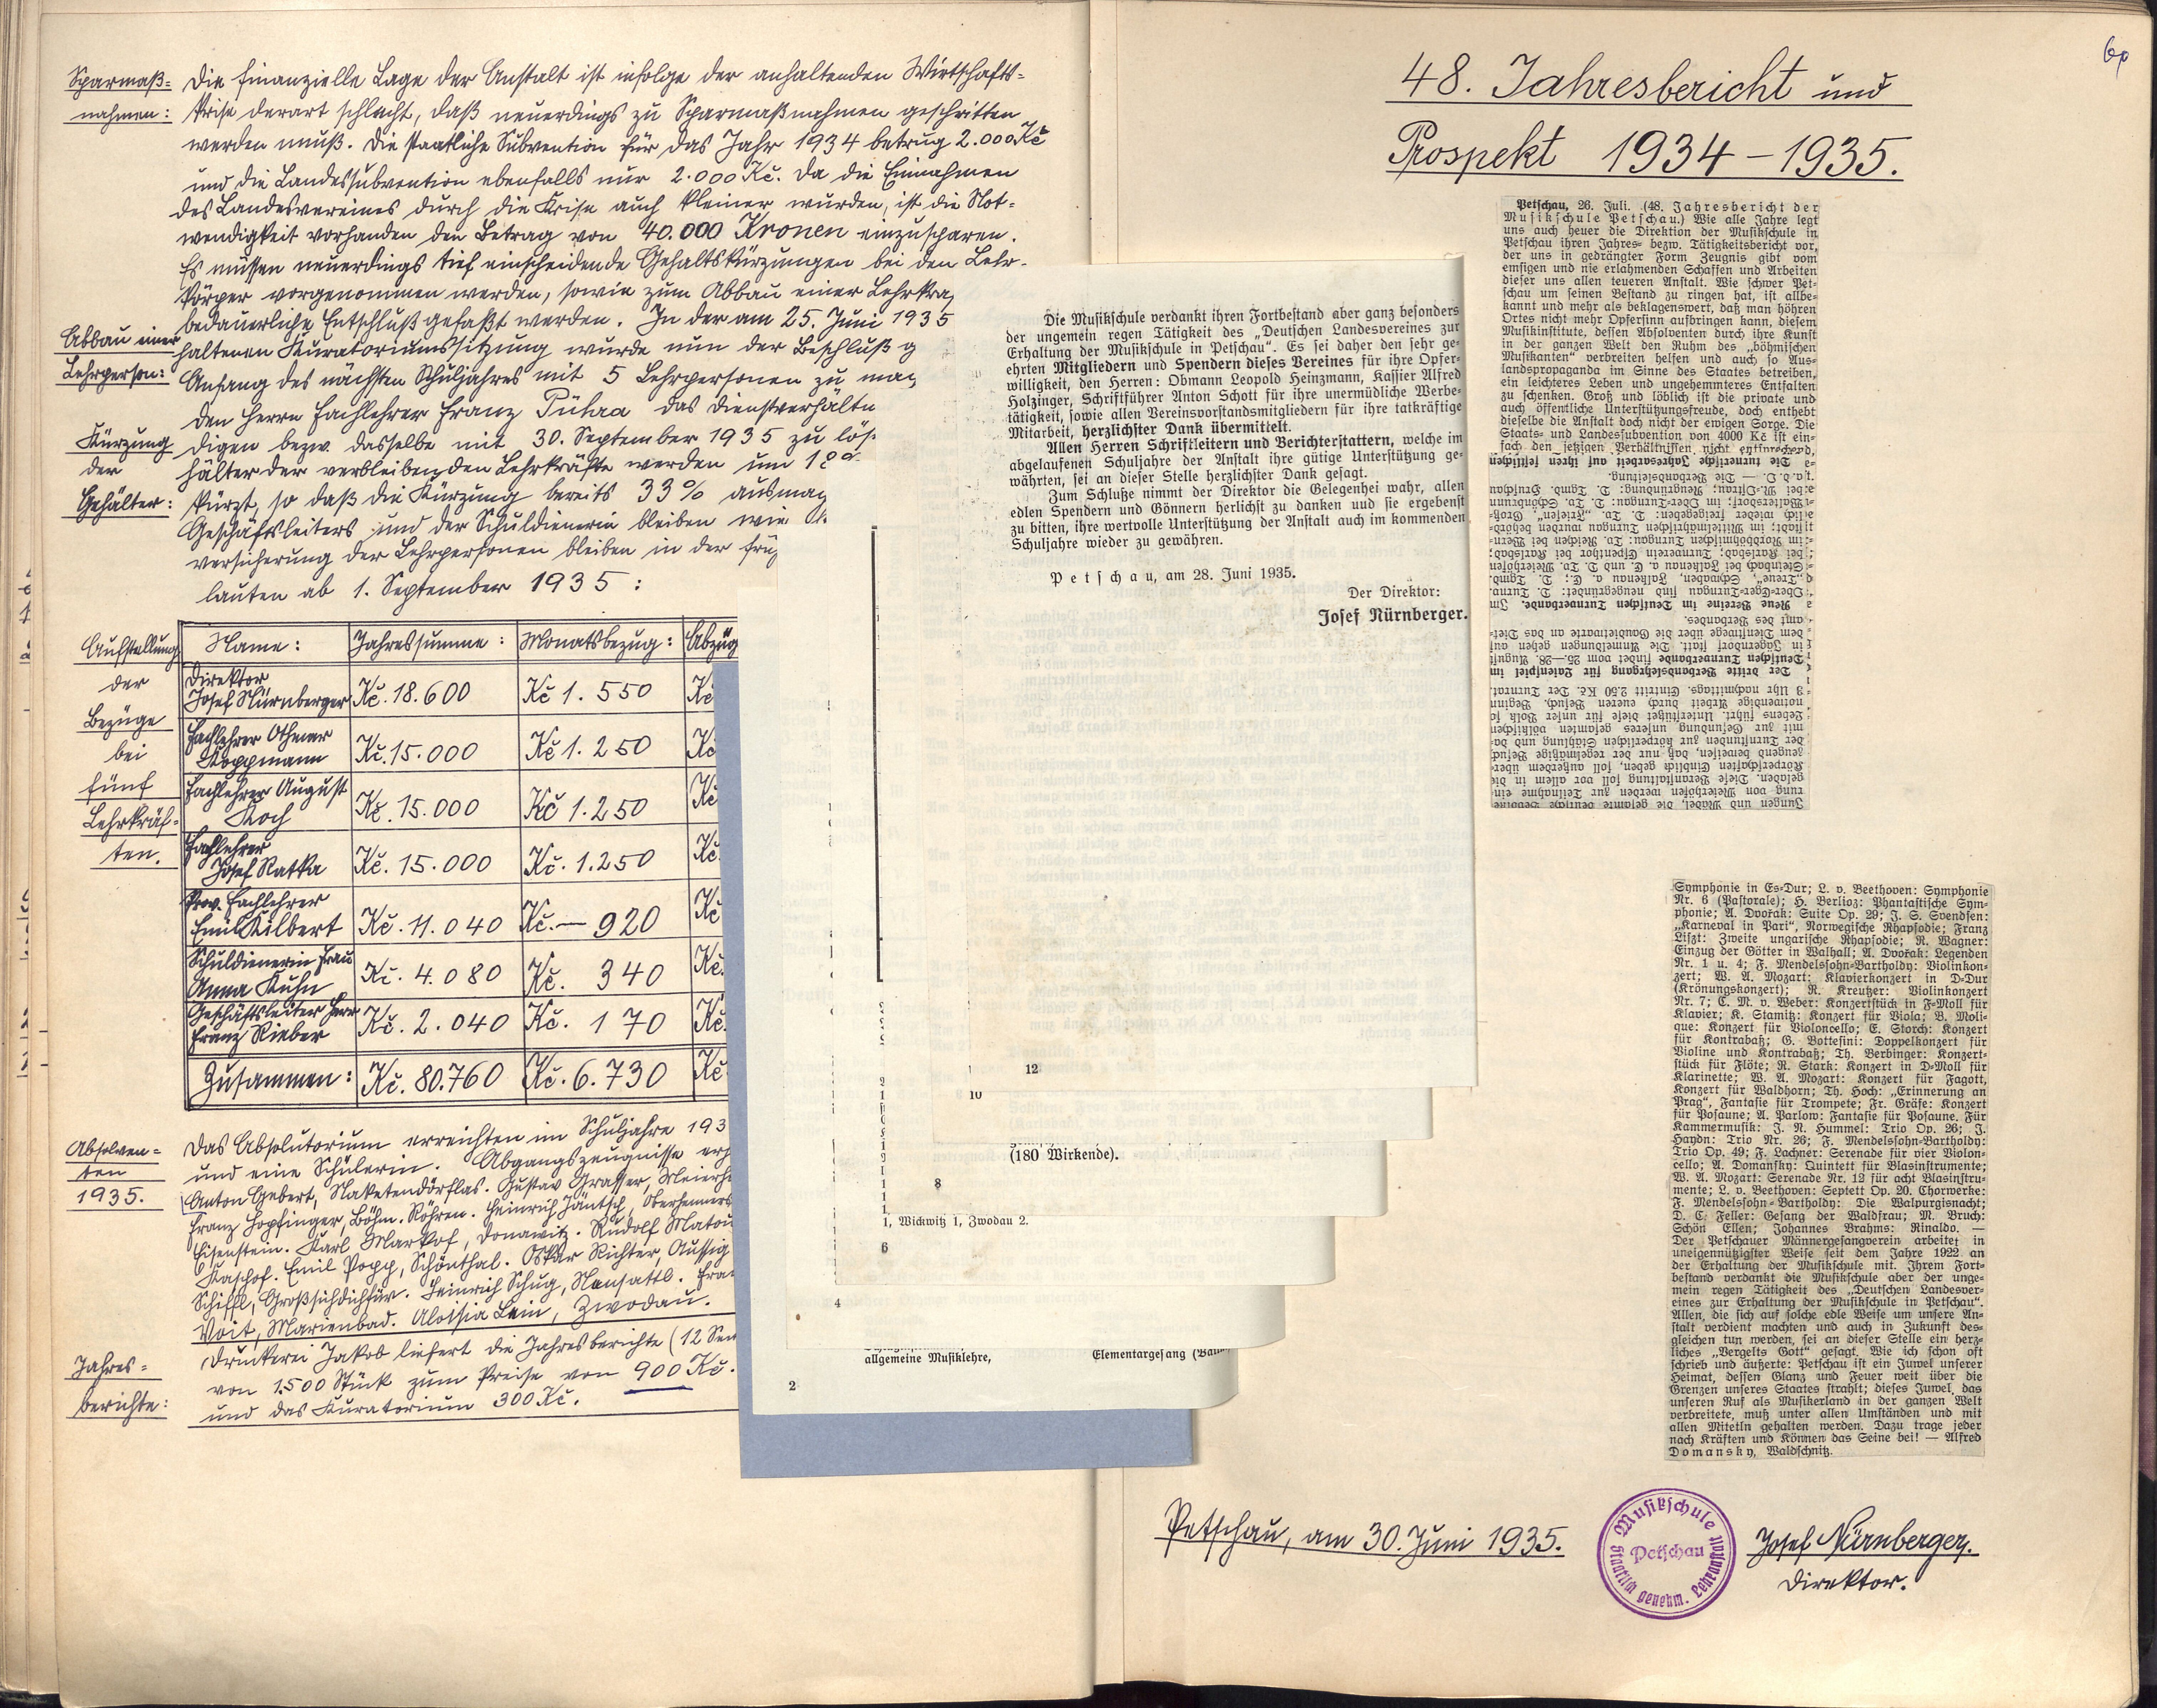 Sparmaß=
nahmen:
Die finanzielle Lage der Anstalt ist infolge der anhaltenden Wirtschafts=
krise derart schlecht, daß neuerdings zu Sparmaßnahmen geschritten
werden muß. Die staatliche Subvention für das Jahr 1934 betrug 2.000 Kč
und die Landessubvention ebenfalls nur 2.000 Kč. Da die Einnahmen
des Landesvereines durch die Krise auch kleiner wurden, ist die Not=
wendigkeit vorhanden den Betrag von 40.000 Kronen einzusparen.
Es müssen neuerdings tief einscheidende Gehaltskürzungen bei den Lehr=
körper vorgenommen werden, sowie zum Abbau einer Lehrkra
bedauerliche Entschluß gefaßt werden. In der am 25. Juni 1935
Abbau einer
Lehrperson:
haltenen Kuratoriumssitzung wurde nun der Beschluß g
Anfang des nächsten Schuljahres mit 5 Lehrpersonen zu ma
den Herrn Fachlehrer Franz das Dienstverhältn
Kürzung
der
Gehälter:
digen bezw. dasselbe mit 30. September 1935 zu lös
hälter der verbleibenden Lehrkräfte werden um 18
kürzt, so daß die Kürzung bereits 33% ausmag
Geschäftsleiters und der Schuldienerin bleiben wie
versicherung der Lehrpersonen bleiben in der frü
lauten ab 1. September 1935:
Aufstellung
der
Bezüge
bei
fünf
Lehrkräf=
ten.
Name: Jahressumme: Monatsbezug: Abzüg
Direktor
Josef Nürnberger Kč. 18.600 Kč 1.550 Kč
Fachlehrer Othmar
Koppmann Kč. 15.000 Kč 1.250 Kč
Fachlehrer August
Koch Kč. 15.000 Kč 1.250 Kč
Fachlehrer
Josef Ratka Kč. 15.000 Kč. 1.250 Kč.
Prov. Fachlehrer
Emil Kilbert Kč. 11.040 Kč. — 920 Kč
Schuldienerin Frau
Anna Kuhn Kč. 4.080 Kč. 340 Kč.
Geschäftsleiter Herr
Franz Rieber Kč. 2.040 Kč. 170 Kč.
Zusammen: Kč. 80.760 Kč. 6.730 Kč
Absolven=
ten
1935.
Das Absolutorium erreichten im Schuljahre 193
und eine Schülerin. Abgangszeugnisse erh
Anton Gebert, Naketendörflas. Gustav Grasser, Meierh
Franz Hopfinger, Böhm. Röhren. Heinrich Jäntsch, Oberhenners
Eisenstein. Karl Markof, Donawitz. Rudolf Matou
Kaschof. Emil Popp, Schönthal. Oskar Richter, Aussig
Schiffl, Großsichdichfür. Heinrich Schug, Neusattl. Fra
Voit, Marienbad. Aloisia Lein, Zwodau.
Jahres=
berichte:
Druckerei Jakob liefert die Jahresberichte (12 Sei
von 1.500 Stück zum Preise von 900 Kč.
und das Kuratorium 300 Kč.
Die Musikschule verdankt ihren Fortbestand aber ganz besonders
der ungemein regen Tätigkeit des „Deutschen Landesvereines zur
Erhaltung der Musikschule in Petschau“. Es sei daher den sehr ge-
ehrten Mitgliedern und Spendern dieses Vereines für ihre Opfer-
willigkeit, den Herren: Obmann Leopold Heinzmann, Kassier Alfred
Holzinger, Schriftführer Anton Schott für ihre unermüdliche Werbe-
tätigkeit, sowie allen Vereinsvorstandsmitgliedern für ihre tatkräftige
Mitarbeit, herzlichster Dank übermittelt.
Allen Herren Schriftleitern und Berichterstattern, welche im
abgelaufenen Schuljahre der Anstalt ihre gütige Unterstützung ge-
währten, sei an dieser Stelle herzlichster Dank gesagt.
Zum Schluße nimmt der Direktor die Gelegenhei wahr, allen
edlen Spendern und Gönnern herlichst zu danken und sie ergebenst
zu bitten, ihre wertvolle Unterstützung der Anstalt auch im kommenden
Schuljahre wieder zu gewähren.
Petschau, am 28. Juni 1935.
Der Direktor:
Josef Nürnberger.
12
10
(180 Wirkende).
8
1, Wickwitz 1, Zwodau 2.
6
4
allgemeine Musiklehre, Elementargesang
2
60
48. Jahresbericht und
Prospekt 1934–1935.
Petschau, 26. Juli. (48. Jahresbericht der
Musikschule Petschau.) Wie alle Jahre legt
uns auch heuer die Direktion der Musikschule in
Petschau ihren Jahres= bezw. Tätigkeitsbericht vor,
der uns in gedrängter Form Zeugnis gibt vom
emsigen und nie erlahmenden Schaffen und Arbeiten
dieser uns allen teueren Anstalt. Wie schwer Pet-
schau um seinen Bestand zu ringen hat, ist allbe-
kannt und mehr als beklagenswert, daß man höhren
Ortes nicht mehr Opfersinn aufbringen kann, diesem
Musikinstitute, dessen Absolventen durch ihre Kunst
in der ganzen Welt den Ruhm des „böhmischen
Musikanten“ verbreiten helfen und auch so Aus-
landspropaganda im Sinne des Staates betreiben,
ein leichteres Leben und ungehemmteres Entfalten
zu schenken. Groß und löblich ist die private und
auch öffentliche Unterstützungsfreude, doch enthebt
dieselbe die Anstalt doch nicht der ewigen Sorge. Die
Staats- und Landessubvention von 4000 Kč ist ein-
fach den jetzigen Verhältnissen nicht entsprechend,
Jungen und Mädel, die gesamte deutsche Bevölke
rung von Meierhöfen werden zur Teilnahme ein
geladen. Diese Veranstaltung soll vor allem in die
Körperschaften Einblick geben, soll außerdem über=
zeugend beweisen, daß nur der regelmäßige Besuch
der Turnstunden zur körperlichen Stählung und da=
mit zur Gesundung unseres gesamten völkischen
Lebens führt. Unterstützet diese für unser Volk so
notwendige Arbeit durch eueren Besuch. Beginn
3 Uhr nachmittags. Eintritt 2.50 Kč. Der Turnrat.
Der dritte Verbandslehrgang für Laienspiel im
Deutschen Turnverbande findet vom 25.—28. August
in Jägerndorf statt. Die Anmeldungen gehen auf
dem Dienstwege über die Gaudietwarte an das Diet-
amt des Verbandes.
Neue Vereine im Deutschen Turnverbande. Im
Symphonie in Es-Dur; L. v. Beethoven: Symphonie
Nr. 6 (Pastorale); H. Berlioz: Phantastische Sym-
phonie; A. Dvořak: Suite Op. 29; J. S. Svendsen:
„Karneval in Pari“, Norwegische Rhapsodie; Franz
Liszt: Zweite ungarische Rhapsodie; R. Wagner:
Einzug der Götter in Walhall; A. Dvořak: Legenden
Nr. 1 u. 4; F. Mendelssohn-Bartholdy: Violinkon-
zert; W. A. Mozart: Klavierkonzert in D-Dur
(Krönungskonzert); R. Kreutzer: Violinkonzert
Nr. 7; C. M. v. Weber: Konzertstück in F-Moll für
Klavier; K. Stamitz: Konzert für Viola; B. Moli-
que: Konzert für Violoncello; E. Storch: Konzert
für Kontrabaß; G. Bottesini: Doppelkonzert für
Violine und Kontrabaß; Th. Verbinger: Konzert-
stück für Flöte; R. Stark: Konzert in D-Moll für
Klarinette; W. A. Mozart: Konzert für Fagott,
Konzert für Waldhorn; Th. Hoch: „Erinnerung an
Prag“, Fantasie für Trompete; Fr. Gräfe: Konzert
für Posaune; A. Parlow: Fantasie für Posaune. Für
Kammermusik: J. N. Hummel: Trio Op. 26; J.
Haydn: Trio Nr. 26; F. Mendelssohn-Bartholdy:
Trio Op. 49; F. Lachner: Serenade für vier Violon-
cello; A. Domansky: Quintett für Blasinstrumente;
W. A. Mozart: Serenade Nr. 12 für acht Blasinstru-
mente; L. v. Beethoven: Septett Op. 20. Chorwerke:
F. Mendelssohn-Bartholdy: Die Walpurgisnacht;
D. C. Feller: Gesang der Waldfrau; M. Bruch:
Schön Ellen; Johannes Brahms: Rinaldo. —
Der Petschauer Männergesangverein arbeitet in
uneigennützigster Weise seit dem Jahre 1922 an
der Erhaltung der Musikschule mit. Ihrem Fort-
bestand verdankt die Musikschule aber der unge-
mein regen Tätigkeit des „Deutschen Landesver-
eines zur Erhaltung der Musikschule in Petschau“.
Allen, die sich auf solche edle Weise um unsere An-
stalt verdient machten und auch in Zukunft des-
gleichen tun werden, sei an dieser Stelle ein herz-
liches „Vergelts Gott“ gesagt. Wie ich schon oft
schrieb und äußerte: Petschau ist ein Juwel unserer
Heimat, dessen Glanz und Feuer weit über die
Grenzen unseres Staates strahlt; dieses Juwel, das
unseren Ruf als Musikerland in der ganzen Welt
verbreitete, muß unter allen Umständen und mit
allen Mitetln gehalten werden. Dazu trage jeder
nach Kräften und Können das Seine bei! — Alfred
Domansky, Waldschnitz.
Petschau, am 30. Juni 1935.
Musikschule
Petschau
Staatlich genehm. Lehranstalt
Josef Nürnberger.
Direktor.